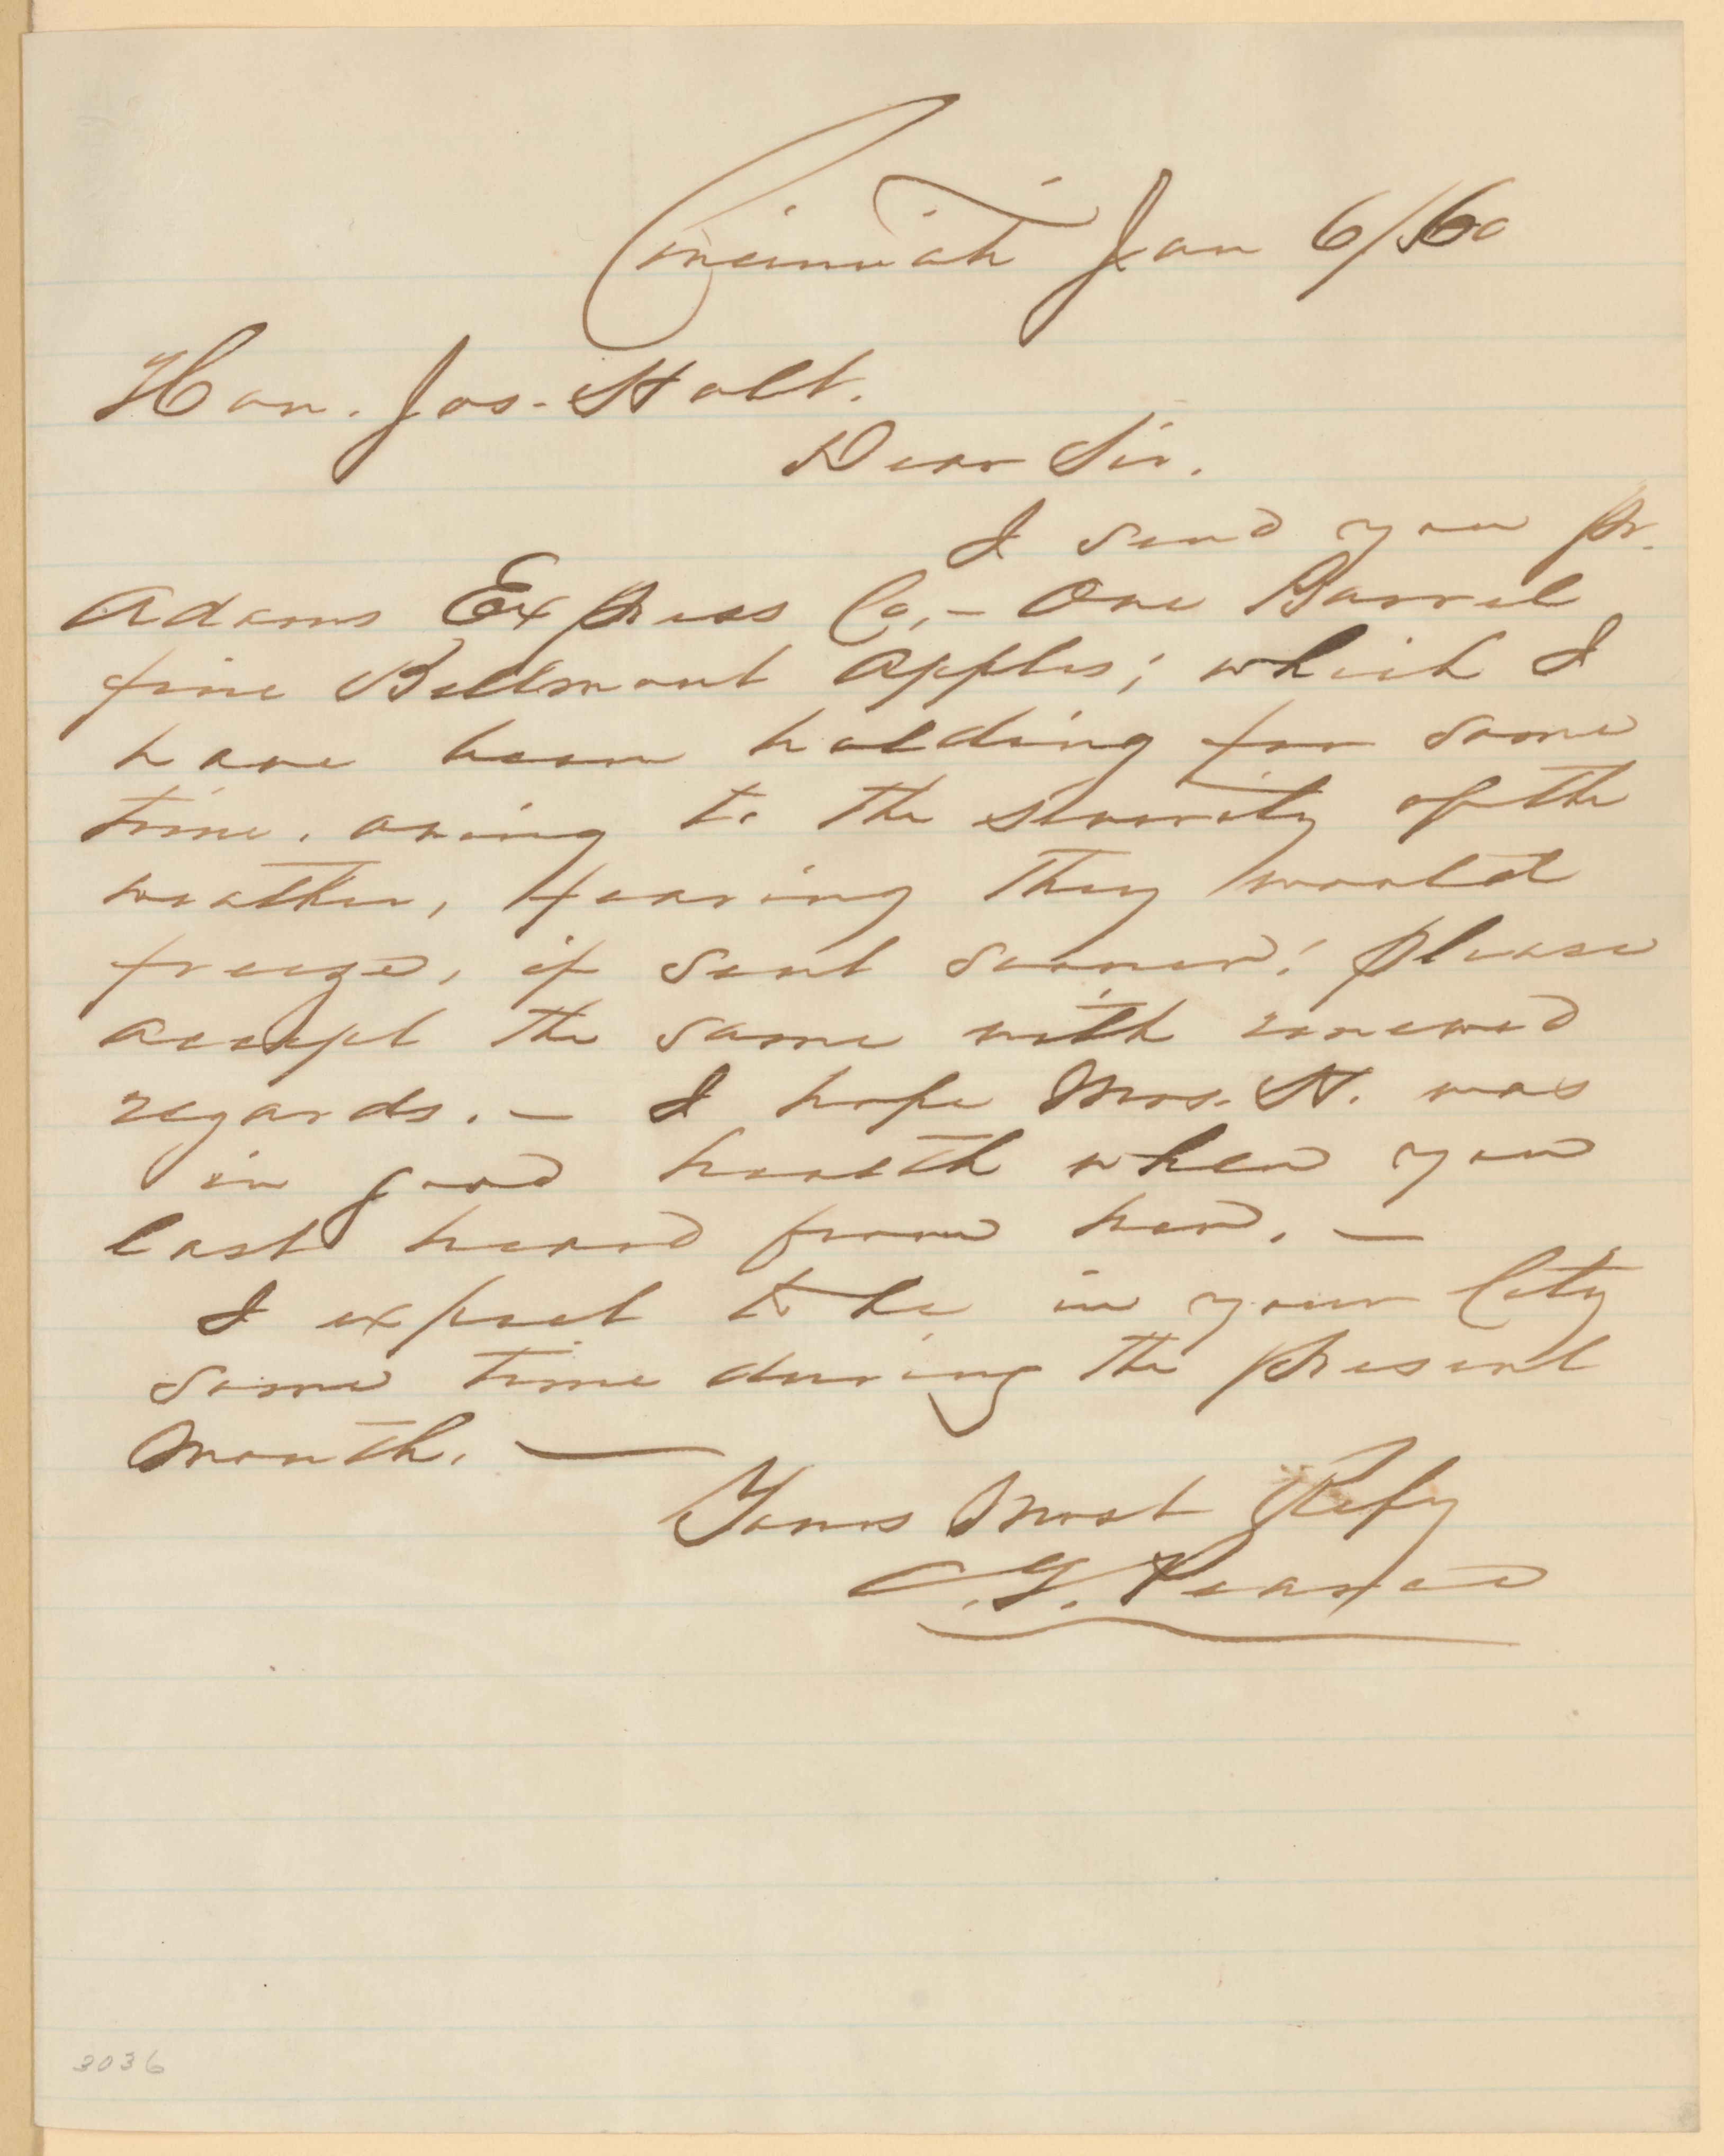 Cincinnati Jan 6/60
Hon. Jos. Holt.
Dear Sir.
I send you pr.
Adams Express Co, - One Barrel
fine Bellmont Apples; which I
have been holding for some
time, owing to the severity of the
weather, fearing they would
freeze, if sent sooner; please
accept the same with renewed
regards. — I hope Mrs. H. was
in good health when you
last heard from her. —
I expect to be in your City
some time during the present
Month. —
Yours Most Resfy
C. G. Pearce
3036